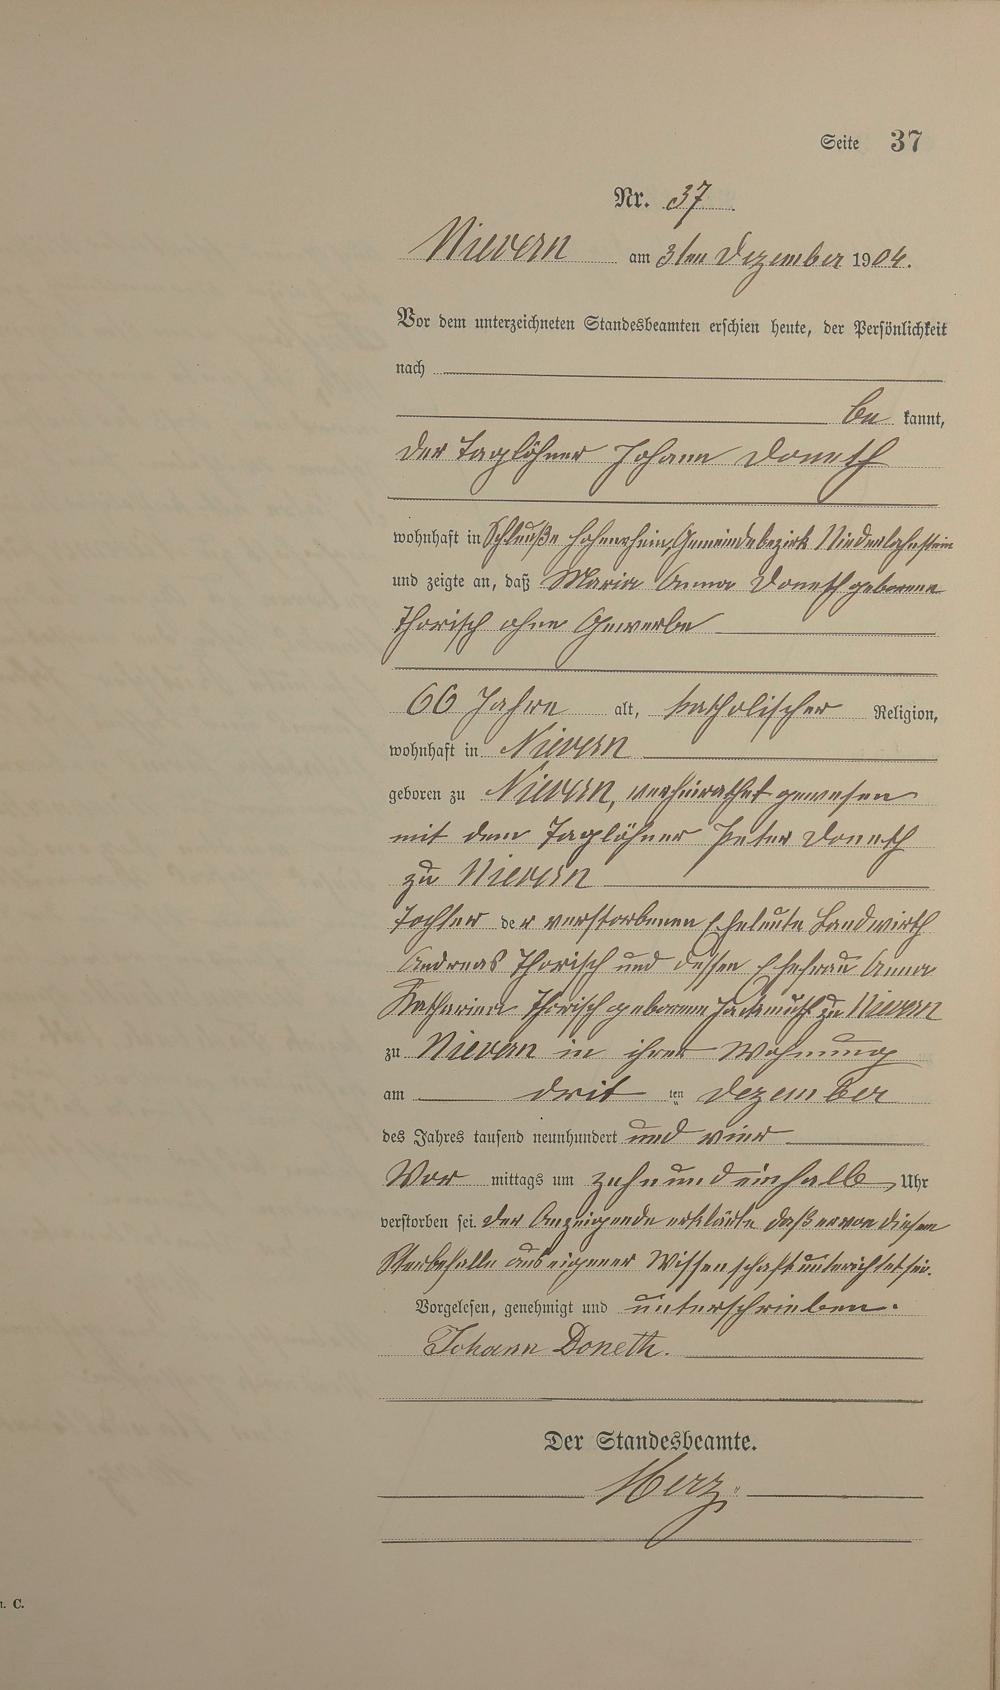 Seite 37
Nr. 37
Nievern am 3ten Dezember 1904.
Vor dem unterzeichneten Standesbeamten erschien heute, der Persönlichkeit
nach
be kannt,
der Taglöhner Johann Doneth
wohnhaft in Schleuße Hohenrhein, Gemeindebezirk Niederlahnstein
und zeigte an, daß Maria Anna Doneth geborene
Thorisch ohne Gewerbe
66 Jahre alt, katholischer Religion,
wohnhaft in Nievern
geboren zu Nievern, verheirathet gewesen
mit dem Taglöhner Peter Doneth
zu Nievern
Tochter der verstorbenen Eheleute Landwirth
Andreas Thorisch und dessen Ehefrau Anna
Katharina Thorisch geborene Jackmuth zu Nievern
zu Nievern in ihrer Wohnung
am drit ten Dezember
des Jahres tausend neunhundert und vier
Vor mittags um zehnundeinhalb Uhr
verstorben sei. Der Anzeigende erklärte daß er von diesem
Sterbefalle aus eigener Wissenschaft unterichtet sei.
Vorgelesen, genehmigt und unterschrieben.
Johann Doneth.
Der Standesbeamte.
Herz
. C.